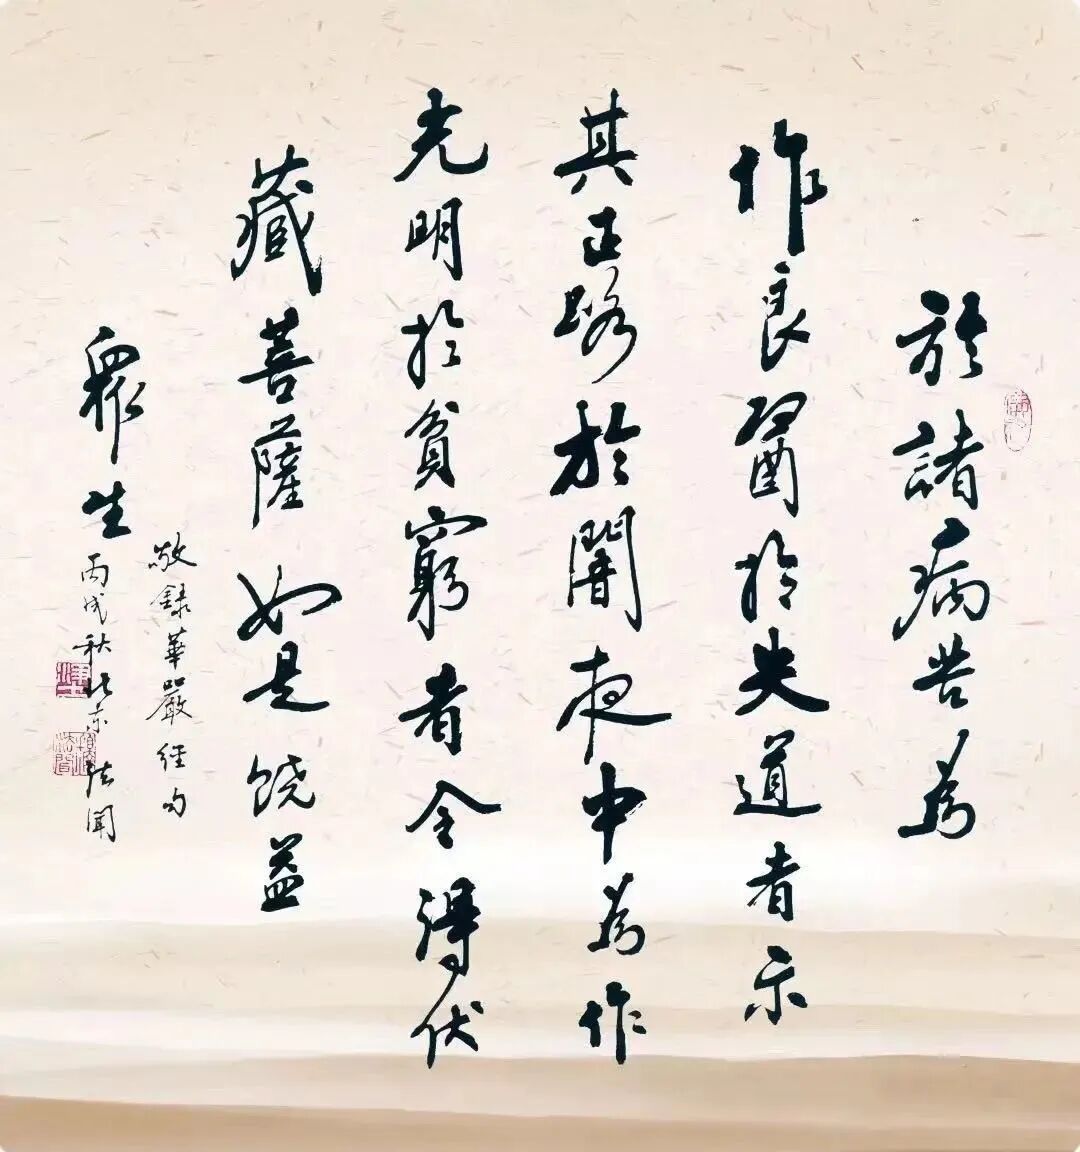 於諸病苦為
作良醫於失道者示
其正路於闇夜中為作
光明於貧窮者令得伏
藏菩薩如是饒益
眾生
敬錄華嚴經句
丙戌秋北京法聞